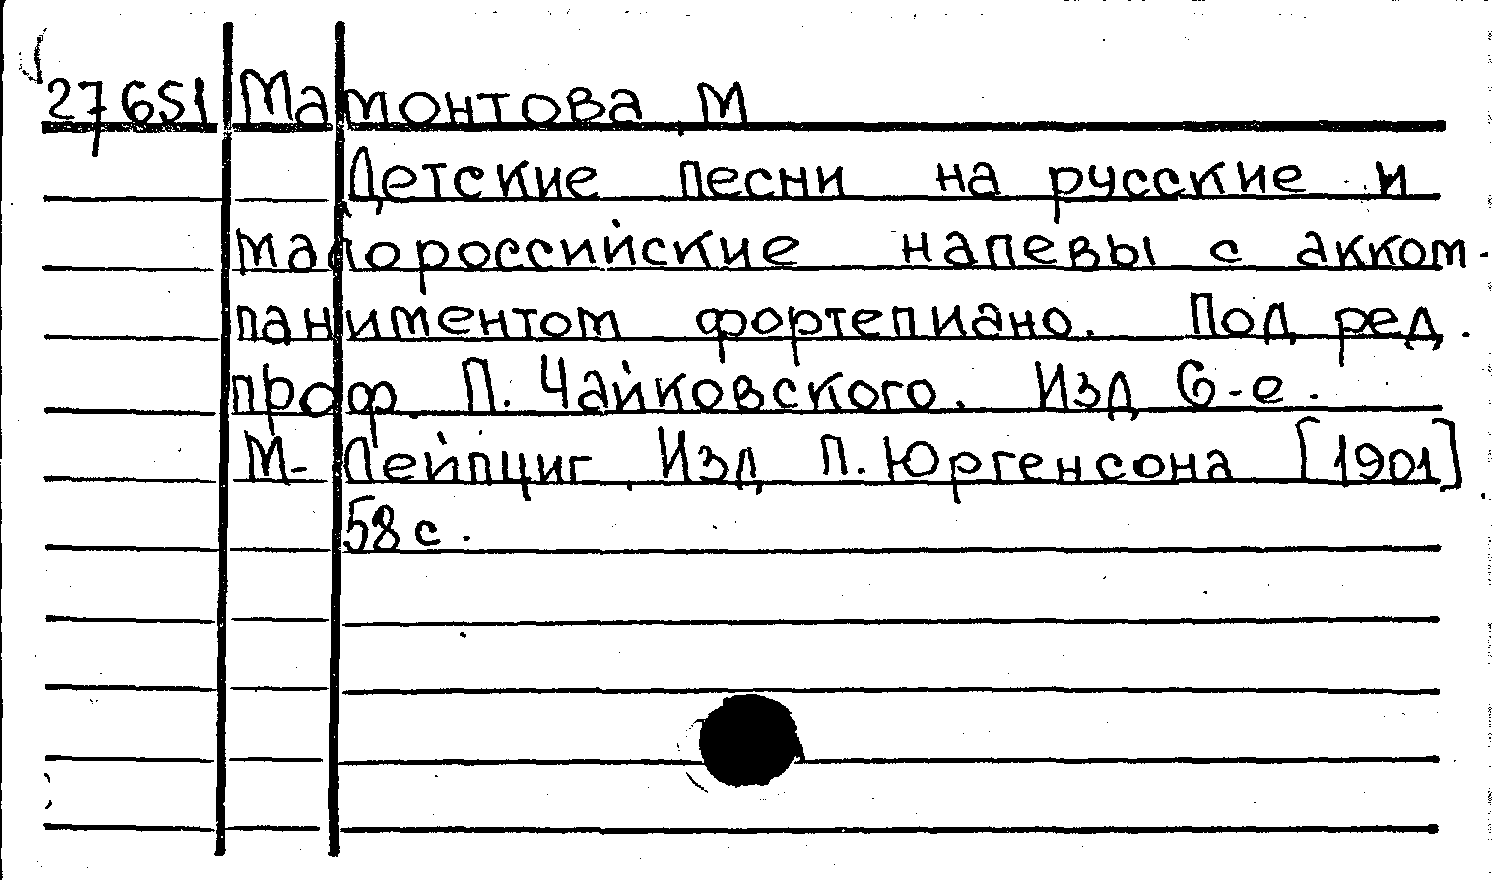 27651 Мамонтова, М
Детские песни на русские и
малороссийские напевы с акком-
паниментом фортепиано. Под ред.
проф. П. Чайковского. Изд 6-е.
М.- Лейпциг, Изд П. Юргенсона [1901]
58 с.